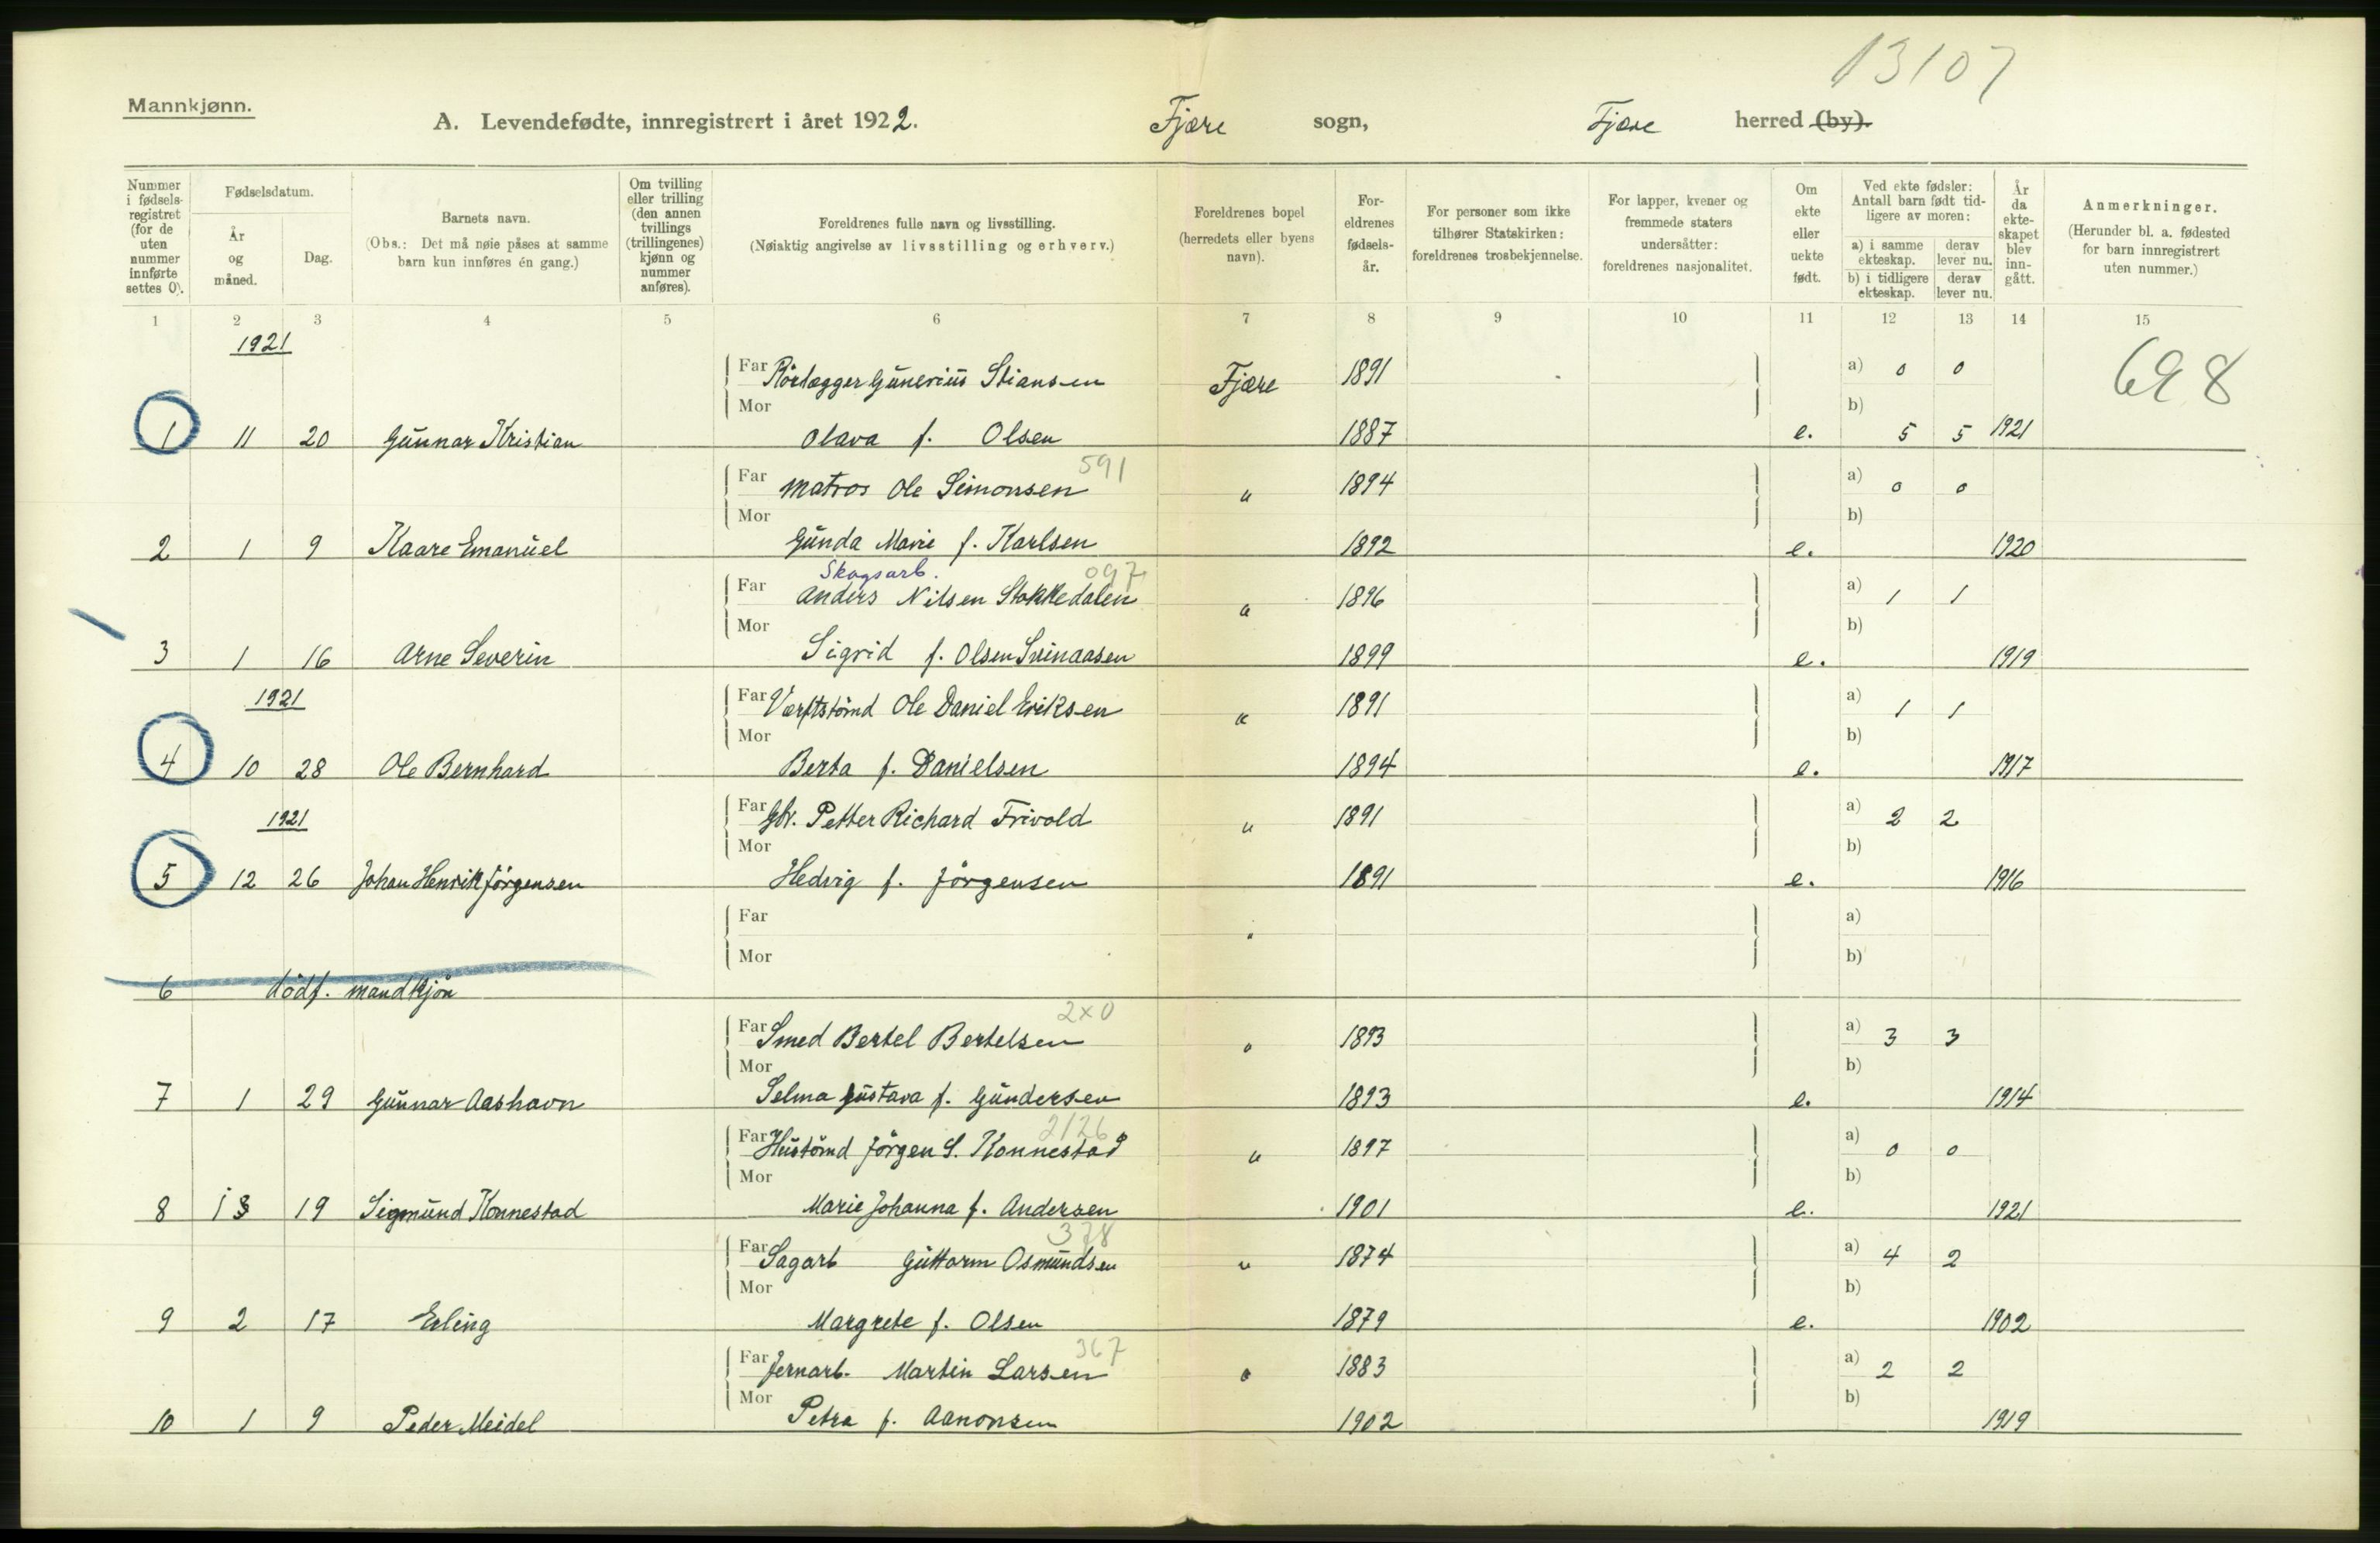 13107
Mannkjønn.
A. Levendefødte, innregistrert i året 1922. Fjære sogn, Fjære herred (by).
Nummer i fødselsregistret (for de uten nummer innførte settes 0).
Fødselsdatum.
År og måned.
Dag.
Barnets navn.
(Obs.: Det må nøie påses at samme barn kun innføres én gang.)
Om tvilling eller trilling (den annen tvillings (trillingenes) kjønn og nummer anføres).
Foreldrenes fulle navn og livsstilling.
(Nøiaktig angivelse av livsstilling og erhverv.)
Foreldrenes bopel (herredets eller byens navn).
For-eldrenes fødsels-år.
For personer som ikke tilhører Statskirken: foreldrenes trosbekjennelse.
For lapper, kvener og fremmede staters undersåtter: foreldrenes nasjonalitet.
Om ekte eller uekte født.
Ved ekte fødsler: Antall barn født tidligere av moren:
a) i samme ekteskap. derav lever nu.
b) i tidligere ekteskap. derav lever nu.
År da ekte-skapet blev inn-gått.
Anmerkninger.
(Herunder bl. a. fødested for barn innregistrert uten nummer.)
1 2 3 4 5 6 7 8 9 10 11 12 13 14 15
1921
Far Rörlægger Gunerius Stiansen Fjære 1891 a) 0 0 698
Mor b)
1 11 20 Gunnar Kristian Olava f. Olsen 1887 e. 5 5 1921
591
Far Matros Ole Simonsen " 1894 a) 0 0
Mor b)
2 1 9 Kaare Emanuel Gunda Marie f. Karlsen 1892 e. 1920
Skogsarb. 097
Far Anders Nilsen Stokkedalen " 1896 a) 1 1
Mor b)
3 1 16 Arne Severin Sigrid f. Olsen Svinaasen 1899 e. 1919
1921
Far Værftstömd Ole Daniel Eriksen " 1891 a) 1 1
Mor b)
4 10 28 Ole Bernhard Berta f. Danielsen 1894 e. 1917
1921
Far Gbr. Petter Richard Frivold " 1891 a) 2 2
Mor b)
5 12 26 Johan Henrik Jörgensen Hedvig f. Jörgensen 1891 e. 1916
Far " a)
Mor b)
6 dödf. mandkjön
2x0
Far Smed Bertel Bertelsen " 1893 a) 3 3
Mor b)
7 1 29 Gunnar Aashavn Selma Gustava f. Gundersen 1893 e. 1914
2126
Far Hustömd Jörgen S. Konnestad " 1897 a) 0 0
Mor b)
8 1 19 Sigmund Konnestad Marie Johanna f. Andersen 1901 e. 1921
378
Far Sagarb Guttorm Osmundsen " 1874 a) 4 2
Mor b)
9 2 17 Erling Margrete f. Olsen 1879 e. 1902
367
Far Jernarb. Martin Larsen " 1883 a) 2 2
Mor b)
10 1 9 Peder Meidel Petra f. Aanonsen 1902 1919